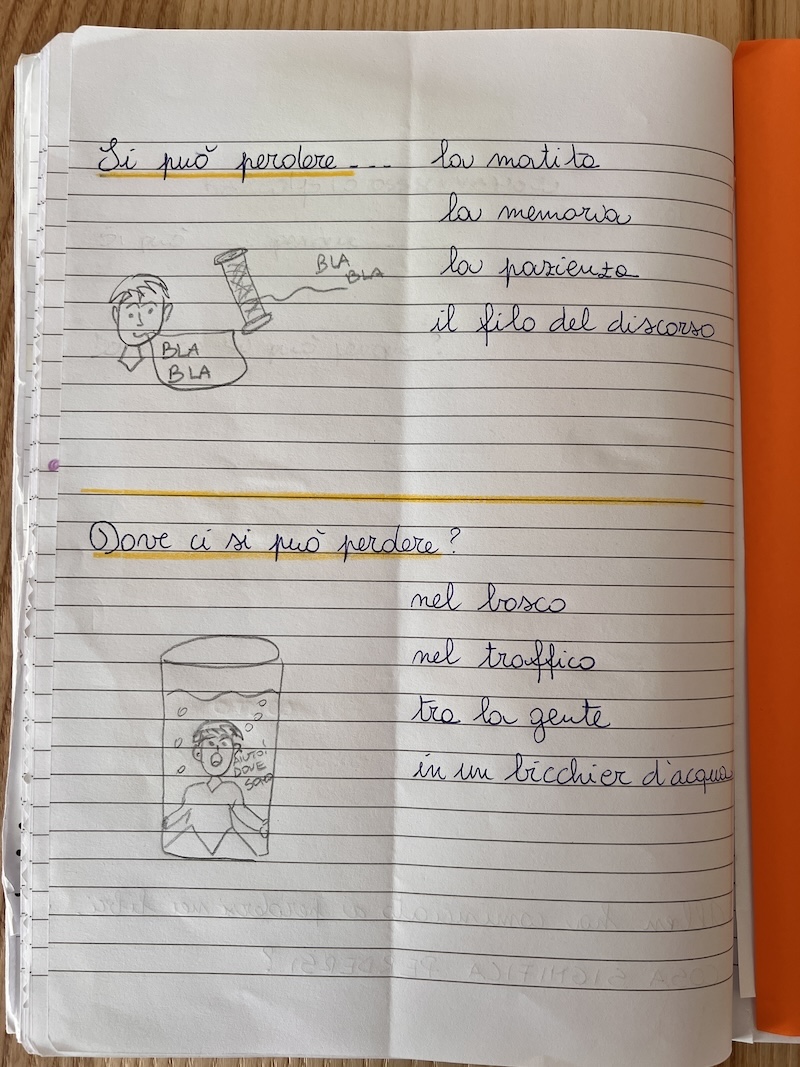 Si può perdere... la matita
la memoria
la pazienza
il filo del discorso
BLA
BLA
BLA
BLA
Dove ci si può perdere?
nel bosco
nel traffico
tra la gente
in un bicchier d'acqua
AIUTO!
DOVE
SONO
COSA SIGNIFICA PERDERSI?